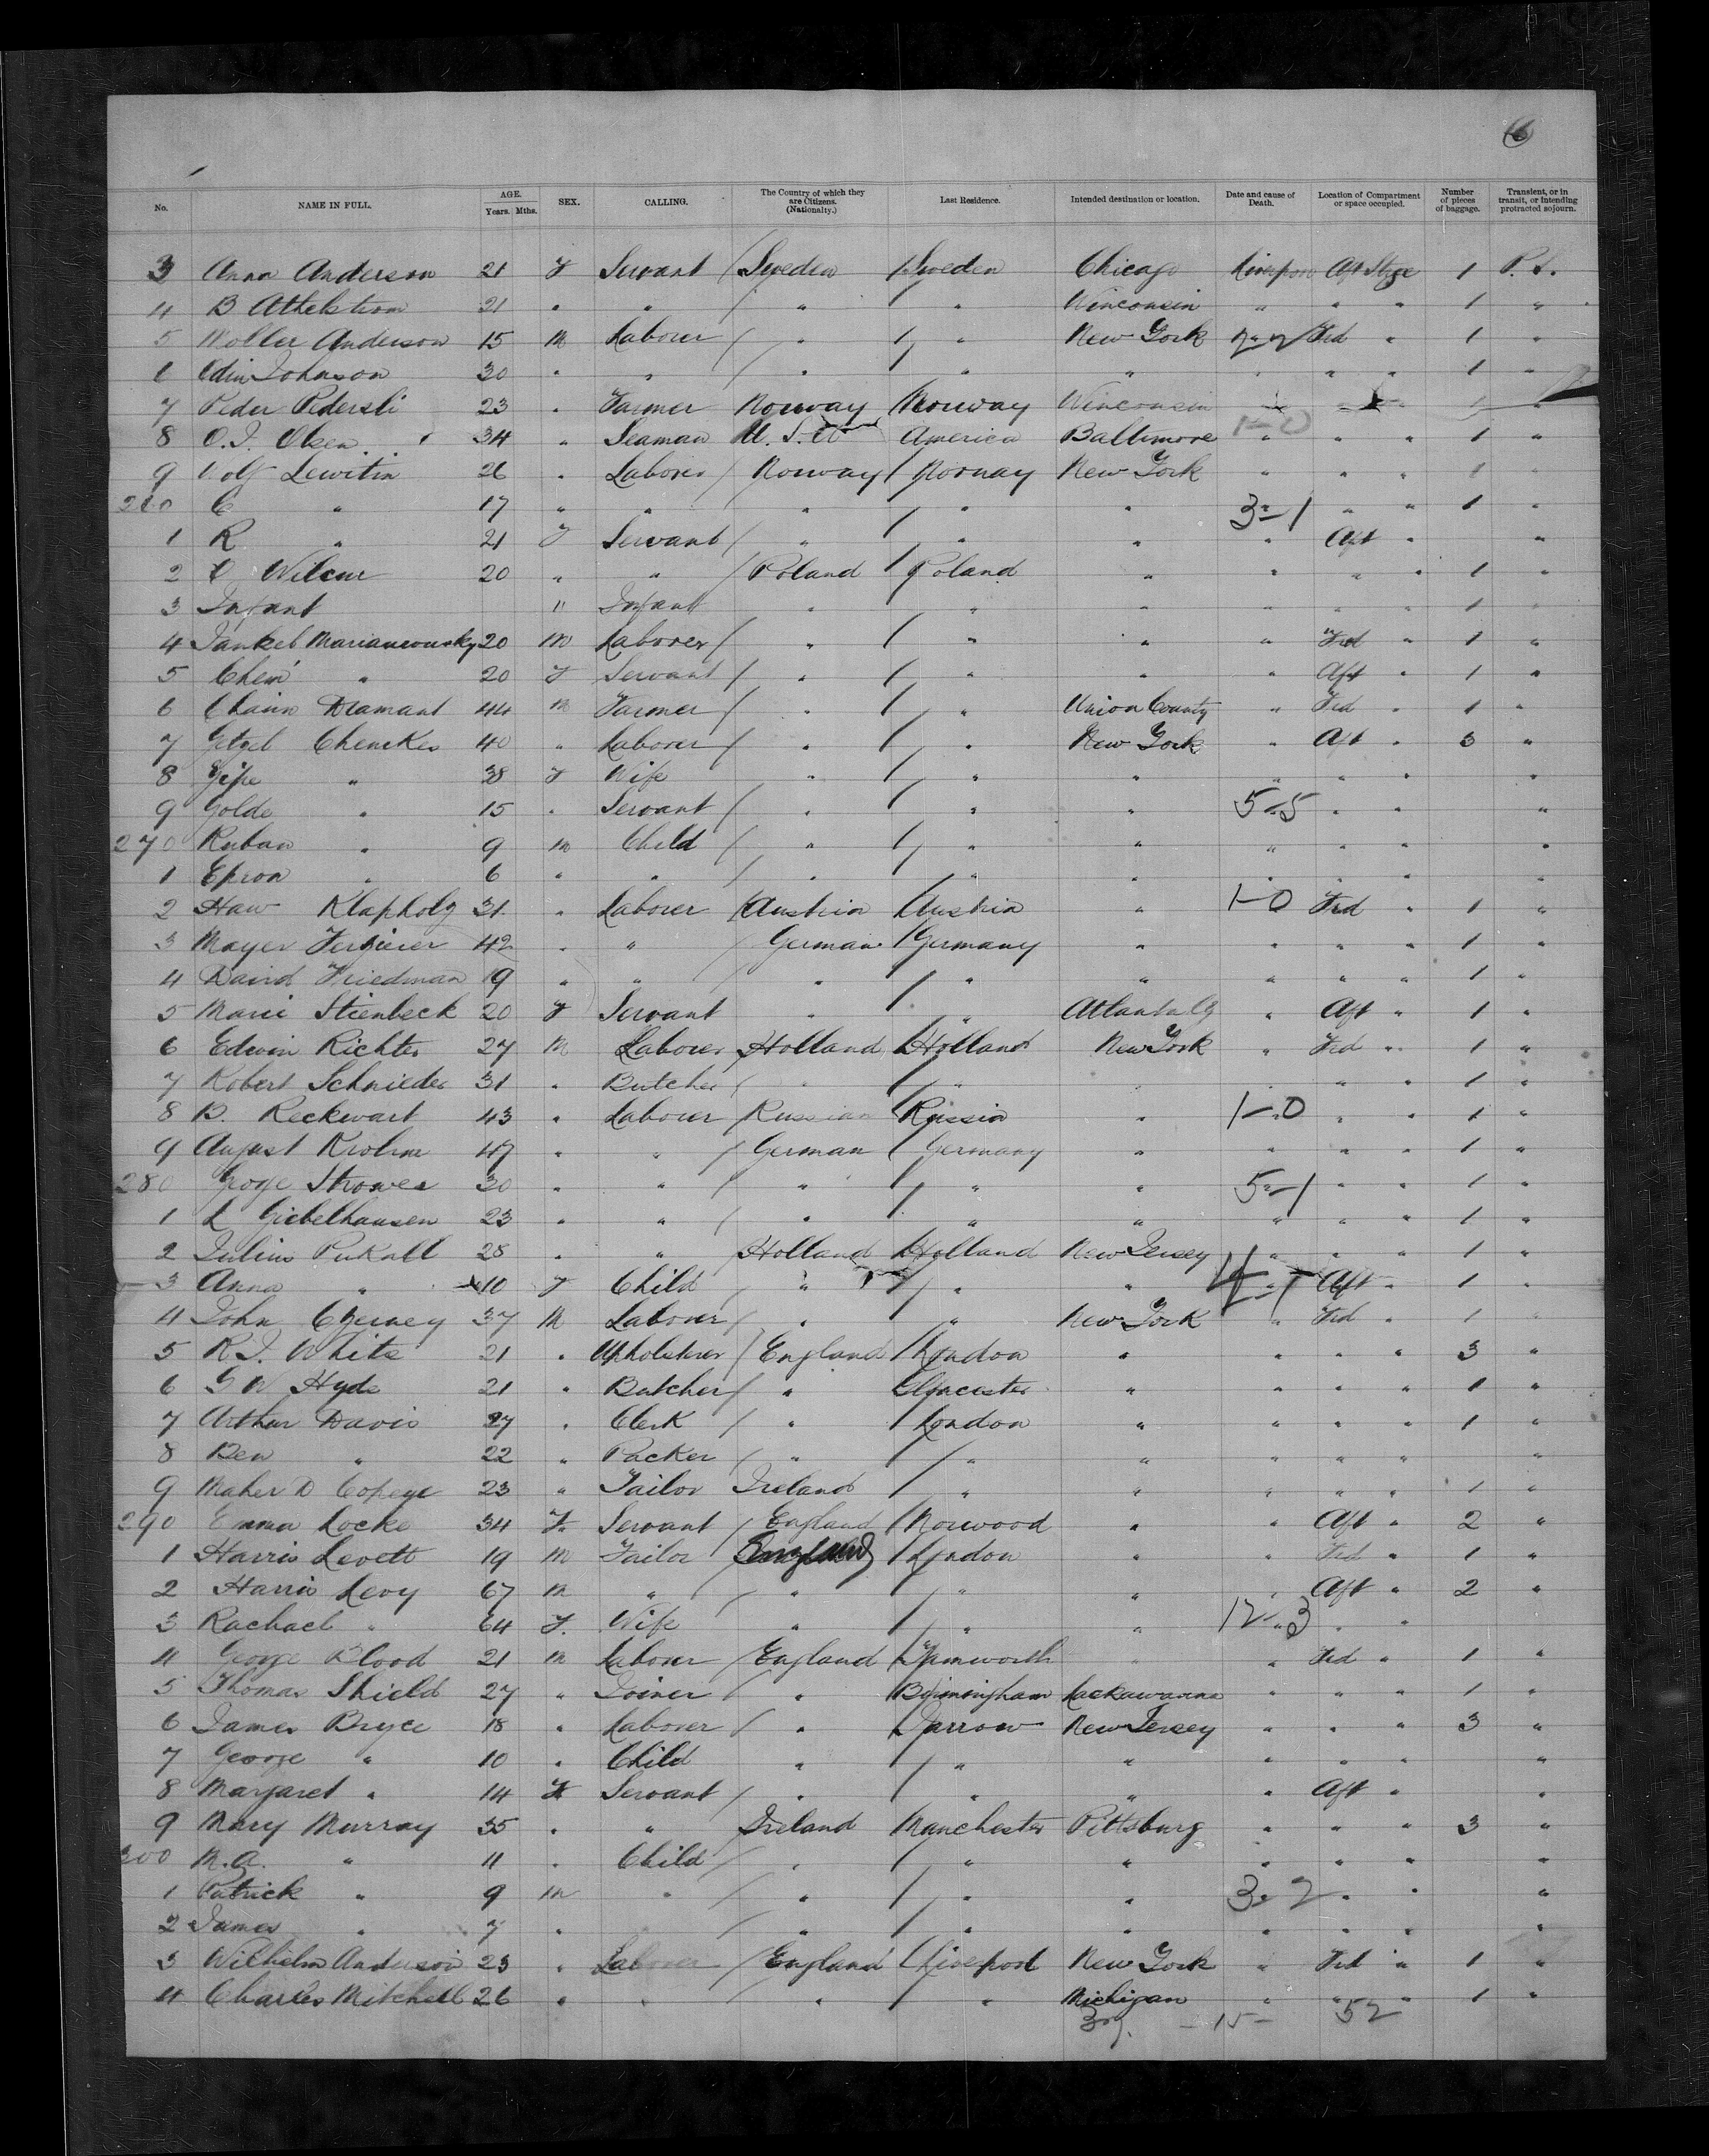 6
No. NAME IN FULL. AGE. Years. Mths. SEX. CALLING. The Country of which they are Citizens. (Nationalty.) Last Residence. Intended destination or location. Date and cause of Death. Location of Compartment or space occupied. Number of pieces of baggage. Transient, or in transit, or intending protracted sojourn.
3 Anna Anderson 21 F Servant Sweden Sweden Chicago Aft Stge 1 P.S.
4 B Athelstrom 21 " " " " Winconsin " " " 1 "
5 Moller Anderson 15 M Laborer " " New York 2-2 Frd " 1 "
6 Edin Johnson 30 " " " " " " " " 1 "
7 Peder Pedersli 23 " Farmer Norway Norway Winconsin " " 1 "
8 O.J. Olsen 34 " Seaman U.S.A America Baltimore 1-0 " " " 1 "
9 Wolf Lewitin 26 " Laborer Norway Norway New York " " " 1 "
260 C " 17 " " " " " 3-1 " " 1 "
1 R " 21 F Servant " " " " Aft " "
2 Wilcur 20 " " Poland Poland " " " " 1 "
3 Infant " Infant " " " " " " 1 "
4 Jankel Marianrousky 20 M Laborer " " " " Frd " 1 "
5 Chem " 20 F Servant " " " " Aft " 1 "
6 Chaim Diamant 44 M Farmer " " Union County " Frd " 1 "
7 Getzel Chenckes 40 " Laborer " " New York " Aft " 3 "
8 Jipe " 38 F Wife " " " " " " "
9 Golde " 15 " Servant " " " 5-5 " " "
270 Ruban " 9 M Child " " " " " " "
1 Epron " 6 " " " " " " " " "
2 Haw Klapholz 31 " Laborer Austria Austria " 1-0 Frd " 1 "
3 Mayer 42 " " German Germany " " " " 1 "
4 David Friedman 19 " " " " " " " " 1 "
5 Marie Stienbeck 20 F Servant " " Atlanta Ga " Aft " 1 "
6 Edwin Richter 27 M Laborer Holland Holland New York " Frd " 1 "
7 Robert Schnieder 31 " Butcher " " " " " " 1 "
8 B. Reckwart 43 " Laborer Russian Russia " 1-0 " " 1 "
9 August Krohne 47 " " German Germany " " " " 1 "
280 Geoge Strower 30 " " " " " 5-1 " " 1 "
1 L Giebelhausen 23 " " " " " " " " 1 "
2 Julius Pukall 28 " " Holland Holland New Jersey " " " 1 "
3 Anna " 10 F Child " " " Aft " 1 "
4 John Czerney 37 M Laborer " " New York " Frd " 1 "
5 R.J. White 21 " Upholsterer England London " " " " 3 "
6 G W Hyde 21 " Butcher " Gloucester " " " " 1 "
7 Arthur Davis 27 " Clerk " London " " " " 1 "
8 Ben " 22 " Packer " " " " " " "
9 Maher D Copeye 23 " Tailor Ireland " " " " " 1 "
290 Emma Locke 34 F. Servant England Norwood " " Aft " 2 "
1 Harris Levett 19 M Tailor England London " " Frd " 1 "
2 Harris Levy 67 M " " " " " Aft " 2 "
3 Rachael " 64 F. Wife " " " 12-3 " "
4 George Blood 21 M Laborer England Tamworth " " Frd " 1 "
5 Thomas Shield 27 " Joiner " Birmingham Lackawanna " " " 1 "
6 James Bryce 18 " Laborer " Jarrow New Jersey " " " 3 "
7 George " 10 " Child " " " " " " "
8 Margaret " 14 F Servant " " " " Aft " "
9 Mary Murray 35 " " Ireland Manchester Pittsburg " " " 3 "
300 M.A. " 11 " Child " " " " " " "
1 Patrick " 9 M " " " " 3-2 " " "
2 James " 7 " " " " " " " " "
3 Wilhelm Anderson 23 " Laborer England Liverpool New York " Frd " 1 "
4 Charles Mitchell 26 " " " " Michigan " " " 1 "
37. - 15 - 52